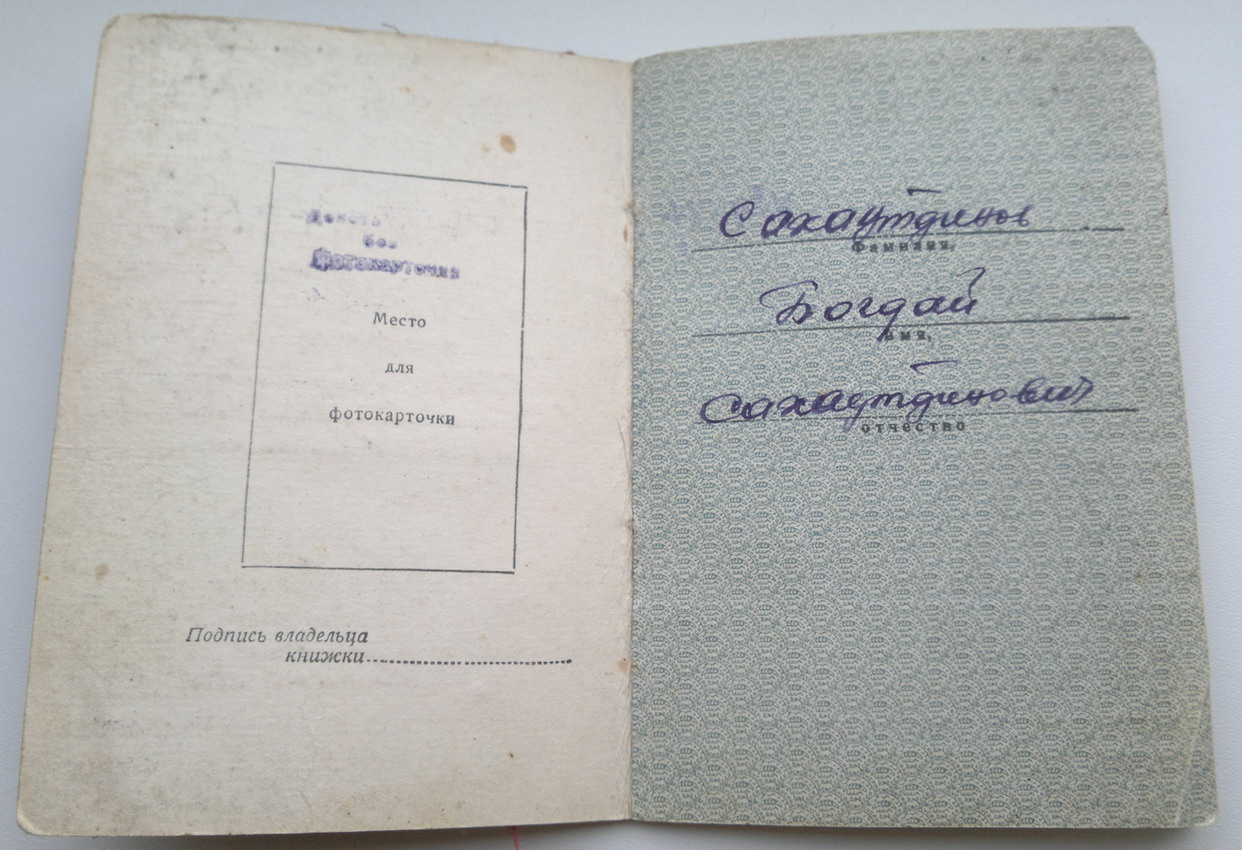 Действ.
без
фотокарточки
Место
для
фотокарточки
Подпись владельца
книжки
Сахаутдинов
Фамилия,
Богдай
имя,
Сахаутдинович
отчество